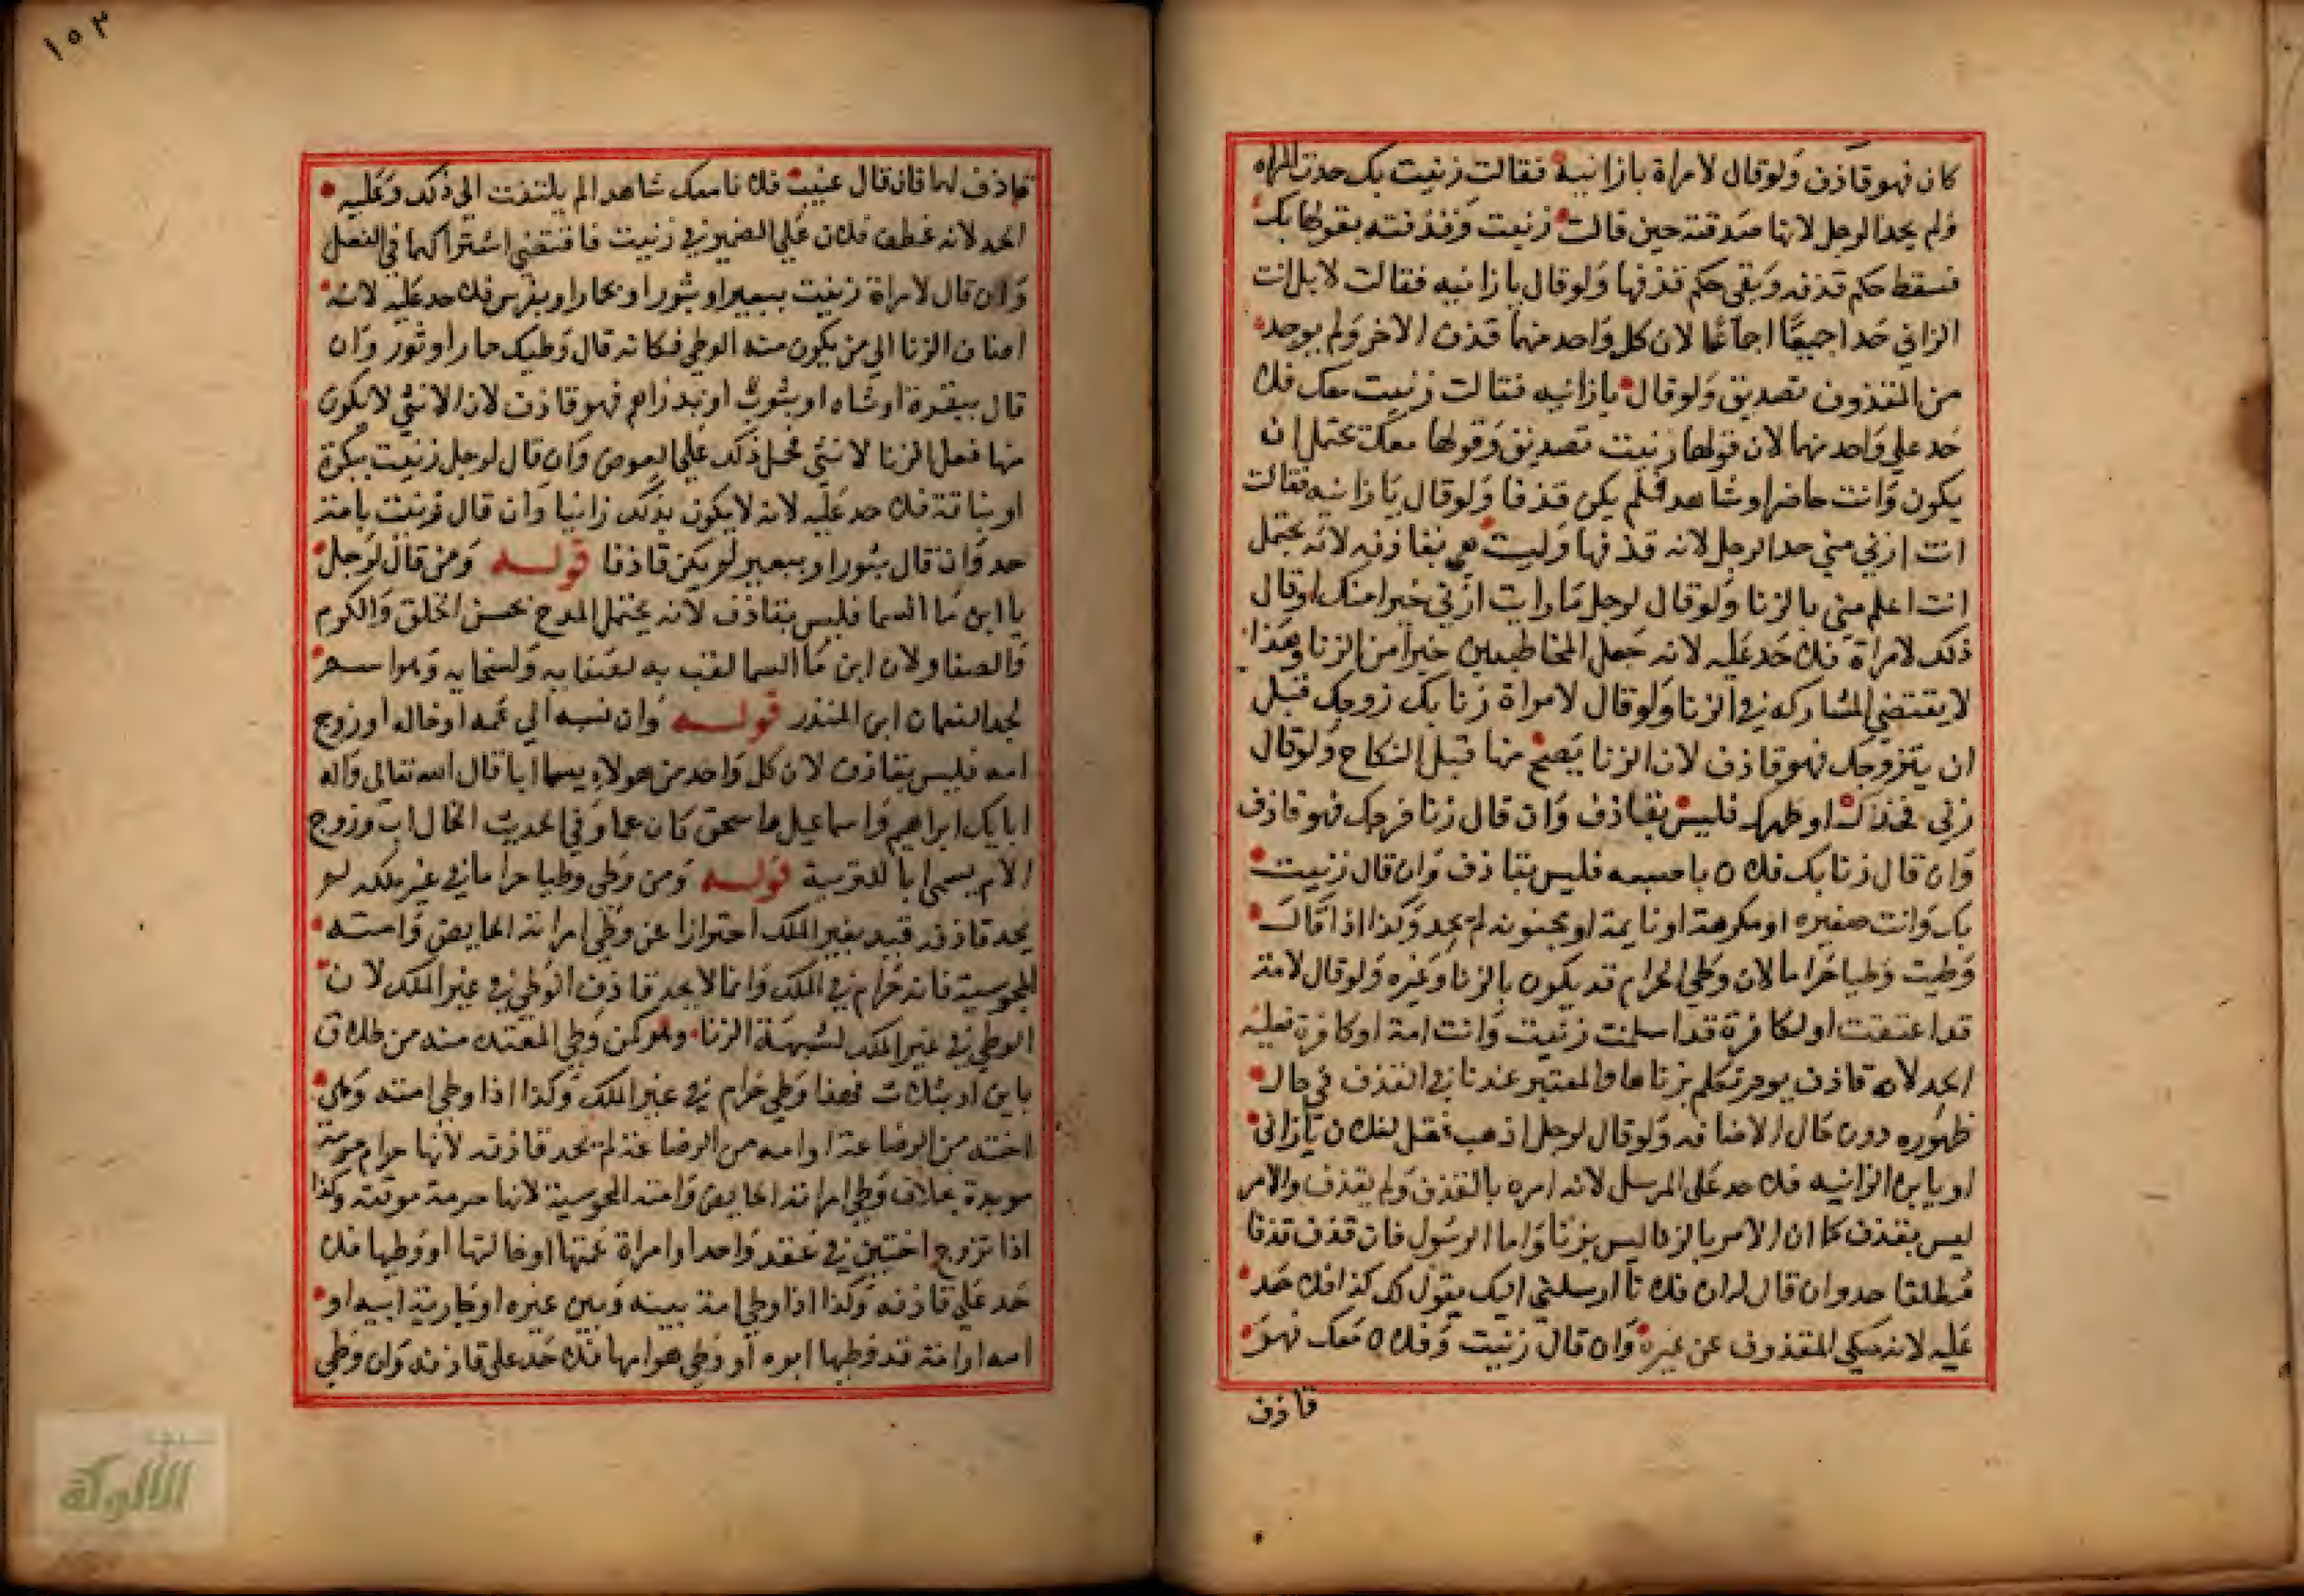 كان فهو قاذف ولو قال لامراة يا زانية فقالت زنيت بك حدت المراه
ولم يحد الرجل لانها صدقته حين قالت زنيت وقذفته بقولها بك
فسقط حكم قذفه وبقي حكم قذفها ولو قال يا زانيه فقالت لا بل انت
الزاني حدا جميعا اجماعا لان كل واحد منهما قذف الاخر ولم يوجد
من المقذوف تصديق ولو قال يا زانيه فقالت زنيت معك فلا
حد علي واحد منهما لان قولها زنيت تصديق وقولها معك يحتمل ان
يكون وانت حاضر او شاهد فلم يكن قذفا ولو قال يا زانيه فقالت
انت ازني مني حد الرجل لانه قذفها وليست هي بقاذفه لانه يحتمل
انت اعلم مني بالزنا ولو قال لرجل ما رايت ازني خيرا منك او قال
ذلك لامراة فلا حد عليه لانه جعل المخاطبين خيرا من الزنا وهذا
لا يقتضي المشاركه في الزنا ولو قال لامراة زنا بك زوجك قبل
ان يتزوجك فهو قاذف لان الزنا يصح منها قبل النكاح ولو قال
زني فخذك او ظهرك فليس بقاذف وان قال زنا فرجك فهو قاذف
وان قال زنا بك فلان باصبعه فليس بقاذف وان قال زنيت
بك وانت صغيره او مكرهة او نايمة او مجنونه لم يحد وكذا اذا قال
وطيت وطيا حراما لان وطي الحرام قد يكون بالزنا وغيره ولو قال لامة
قد اعتقت او لكافرة قد اسلمت زنيت وانت امة او كافرة فعليه
الحد لانه قاذف يوم تكلم بزناها والمعتبر عندنا في القذف في حال
ظهوره دون حال الاضافه ولو قال لرجل اذهب فقل لفلان يا زاني
او يا بن الزانيه فلا حد على المرسل لانه امره بالقذف ولم يقذف والامر
ليس بقذف كما ان الامر بالزنا ليس بزنا واما الرسول فان قذف قذفا
مطلقا حد وان قال ان فلانا ارسلني اليك يقول لك كذا فلا حد
عليه لانه حكي المقذوف عن غيره وان قال زنيت وفلان معك فهو
قاذف
١٥٣
قاذف لهما فان قال عنيت فلانا معك شاهدا لم يلتفت الي ذلك وعليه
الحد لانه عطف فلان علي الضمير في زنيت فاقتضي اشتراكهما في الفعل
وان قال لامراة زنيت ببعير او بثور او بحمار او بفرس فلا حد عليه لانه
اضاف الزنا الي من يكون منه الوطي فكانه قال وطيك حمار او ثور وان
قال ببقرة او شاه او بثوب او بدراهم فهو قاذف لان الانثي لا يكون
منها فعل الزنا لانثي فحمل ذلك علي العوض وان قال لرجل زنيت ببكرة
او بناقة فلا حد عليه لانه لا يكون بذلك زانيا وان قال زنيت بامة
حد وان قال بثور او ببعير لم يكن قاذفا قوله ومن قال لرجل
يا ابن ما السما فليس بقاذف لانه يحتمل المدح بحسن الخلق والكرم
والصفا ولان ابن ما السما لقب به لصفايه ولسخايه وهو اسم
لجد النعمان ابن المنذر قوله وان نسبه الي عمه او خاله او زوج
امه فليس بقاذف لان كل واحد من هولاء يسما ابا قال الله تعالى واله
ابايك ابراهيم واسماعيل واسحق كان عما وفي الحديث الخال اب وزوج
الام يسمى ابا للتربية قوله ومن وطي وطيا حراما في غير ملكه لم
يحد قاذفه قيد بغير الملك احترازا عن وطي امراته الحايض وامته
المجوسية فانه حرام في الملك وانما لا يحد قاذف الوطي في غير الملك لان
الوطي في غير الملك لشبهة الزنا وهو كمن وطي المعتده منه من طلاق
باين او بثلاث فهذا وطي حرام في غير الملك وكذا اذا وطي امته وهي
اخته من الرضاعة او امه من الرضاعة لم يحد قاذفه لانها حرام حرمة
موبدة بخلاف وطي امراته الحايض وامته المجوسية لانها حرمة موقتة وكذا
اذا تزوج اختين في عقد واحد او امراة عمتها او خالتها او وطيها فلا
حد على قاذفه وكذا اذا وطي امة بينه وبين غيره او جارية ابيه او
امه او امة قد وطيها ابوه او وطي هو امها فلا حد على قاذفه وان وطي
الألوكة